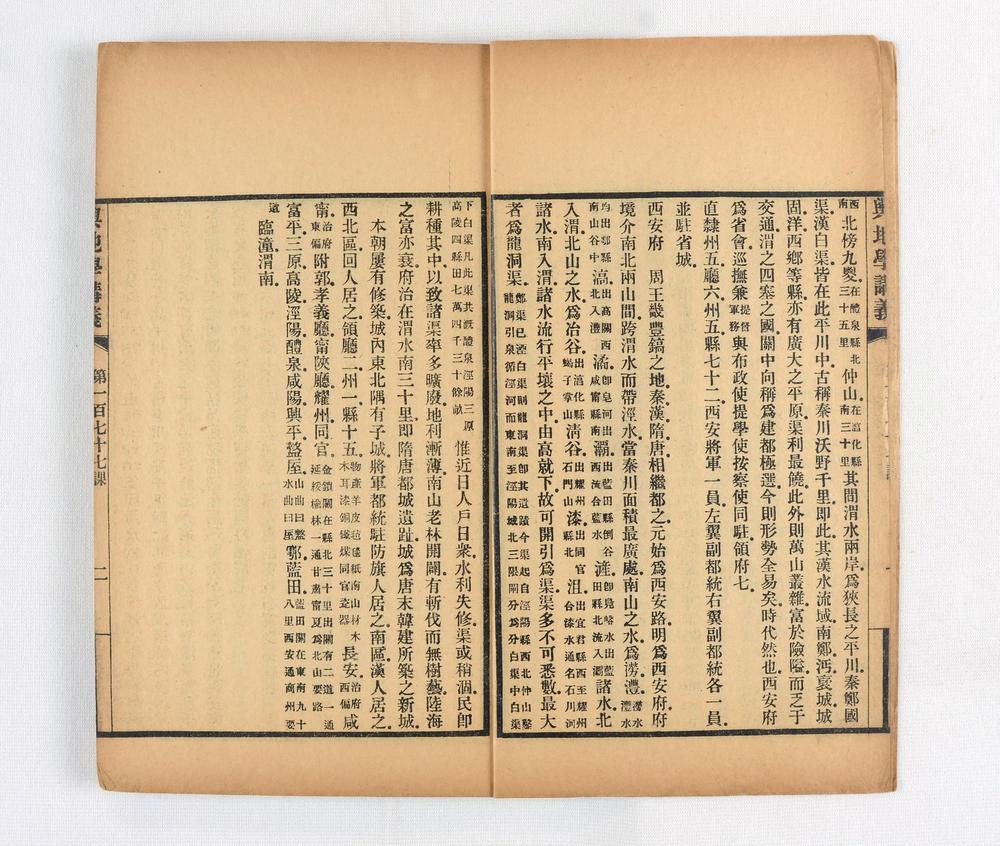 西南北傍九嵏在醴泉縣北三十五里仲山在涇化縣南三十里其間渭水兩岸爲狹長之平川秦鄭國
渠漢白渠皆在此平川中古稱秦川沃野千里即此其漢水流域南鄭沔襃城城
固洋西鄉等縣亦有廣大之平原渠利最饒此外則萬山叢雜富於險隘而乏于
交通渭之四塞之國關中向稱爲建都極選今則形勢全易矣時代然也西安府
爲省會巡撫兼提督軍務與布政使提學使按察使同駐領府七
直隸州五廳六州五縣七十二西安將軍一員左翼副都統右翼副都統各一員
並駐省城
西安府 周王畿豐鎬之地秦漢隋唐相繼都之元始爲西安路明爲西安府府
境介南北兩山間跨渭水而帶涇水當秦川面積最廣處南山之水爲澇灃澇水灃水
均出鄠縣南山谷中滈出咸關西北入灃潏即皂河出咸甯縣南灞出藍田縣倒谷西流合藍水滻即兎峪水出藍田縣北流入灞諸水北
入渭北山之水爲冶谷出涇化縣蝎子掌山淸谷出耀州石門山漆出同官縣北沮出宜君縣西至耀州合漆水通名石川河
諸水南入渭諸水流行平壤之中由高就下故可開引爲渠渠多不可悉數最大
者爲龍洞渠鄭渠已湮白渠則龍洞渠即其遺蹟今渠起自涇陽縣西北仲山鑿龍洞引泉循涇河而東南至涇陽城北三限閘分爲分白渠中白渠
下白渠凡此渠共漑醴泉涇陽三原高陵四縣田七萬四千三十餘畝惟近日人戶日衆水利失修渠或稍涸民卽
耕種其中以致諸渠率多曠廢地利漸薄南山老林開闢有斬伐而無樹藝陸海
之富亦衰府治在渭水南三十里即隋唐都城遺趾城爲唐末韓建所築之新城
本朝屢有修築城內東北隅有子城將軍都統駐防旗人居之南區漢人居之
西北區回人居之領廳二州一縣十五物產羊皮毡毯紙南山材木木耳漆銅鐵煤同官瓷器長安治府西偏咸
甯治府東偏附郭孝義廳甯陝廳耀州同官金鎖關在縣北三十里出關有二道一通延綏楡林一通甘肅甯夏爲北山要路
富平三原高陵涇陽醴泉咸陽興平盩厔山曲曰盩水曲曰厔鄠藍田藍田關在東南九十八里西安通商州要
道臨潼渭南
輿地學講義 第一百七十七課 二